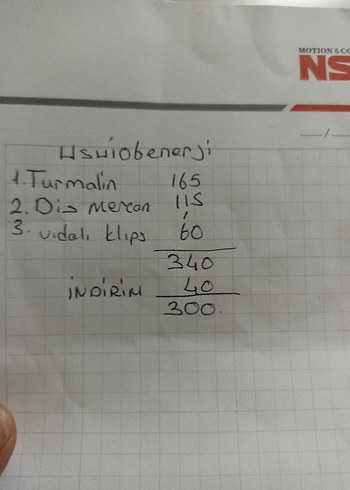 MOTION & CO
NS
...... / ...
Usuiobenerji
1. Turmalin 165
2. Dis Mercan 115
3. vidalı klips 60
340
İNDİRİM 40
300.